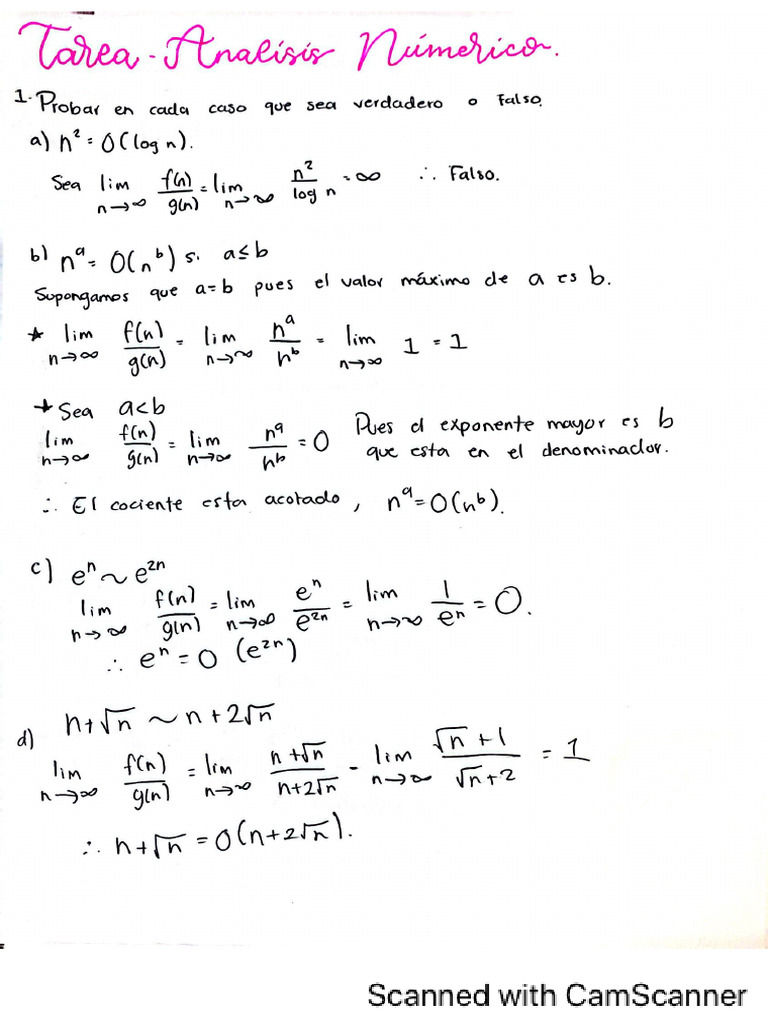 Tarea - Analisis Númerico.
1. Probar en cada caso que sea verdadero o Falso.
a) n² = O(log n).
Sea lim n→∞ f(n)/g(n) = lim n→∞ n²/log n = ∞ ∴ Falso.
b) nᵃ = O(nᵇ) si a≤b
Supongamos que a=b pues el valor máximo de a es b.
* lim n→∞ f(n)/g(n) = lim n→∞ nᵃ/nᵇ = lim n→∞ 1 = 1
* Sea a<b
lim n→∞ f(n)/g(n) = lim n→∞ nᵃ/nᵇ = 0 Pues el exponente mayor es b
que esta en el denominador.
∴ El cociente esta acotado, nᵃ = O(nᵇ).
c) eⁿ ~ e²ⁿ
lim n→∞ f(n)/g(n) = lim n→∞ eⁿ/e²ⁿ = lim n→∞ 1/eⁿ = 0.
∴ eⁿ = O (e²ⁿ)
d) n+√n ~ n+2√n
lim n→∞ f(n)/g(n) = lim n→∞ n+√n/n+2√n = lim n→∞ √n+1/√n+2 = 1
∴ n+√n = O(n+2√n).
Scanned with CamScanner